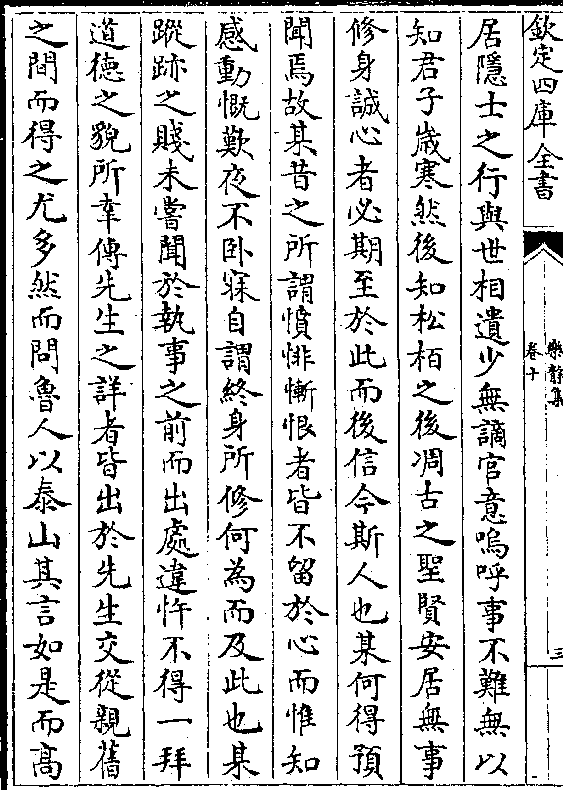 欽定四庫全書
樂静集
卷十
三
居隱士之行與世相遺少無謫官意嗚呼事不難無以
知君子嵗寒然後知松栢之後凋古之聖賢安居無事
修身誠心者必期至於此而後信今斯人也某何得預
聞焉故某昔之所謂憤悱慚恨者皆不留於心而惟知
感動慨歎夜不卧寐自謂終身所修何為而及此也某
蹤跡之賤未嘗聞於執事之前而出處違忤不得一拜
道德之貌所幸傳先生之詳者皆出於先生交從親舊
之間而得之尤多然而問魯人以泰山其言如是而高